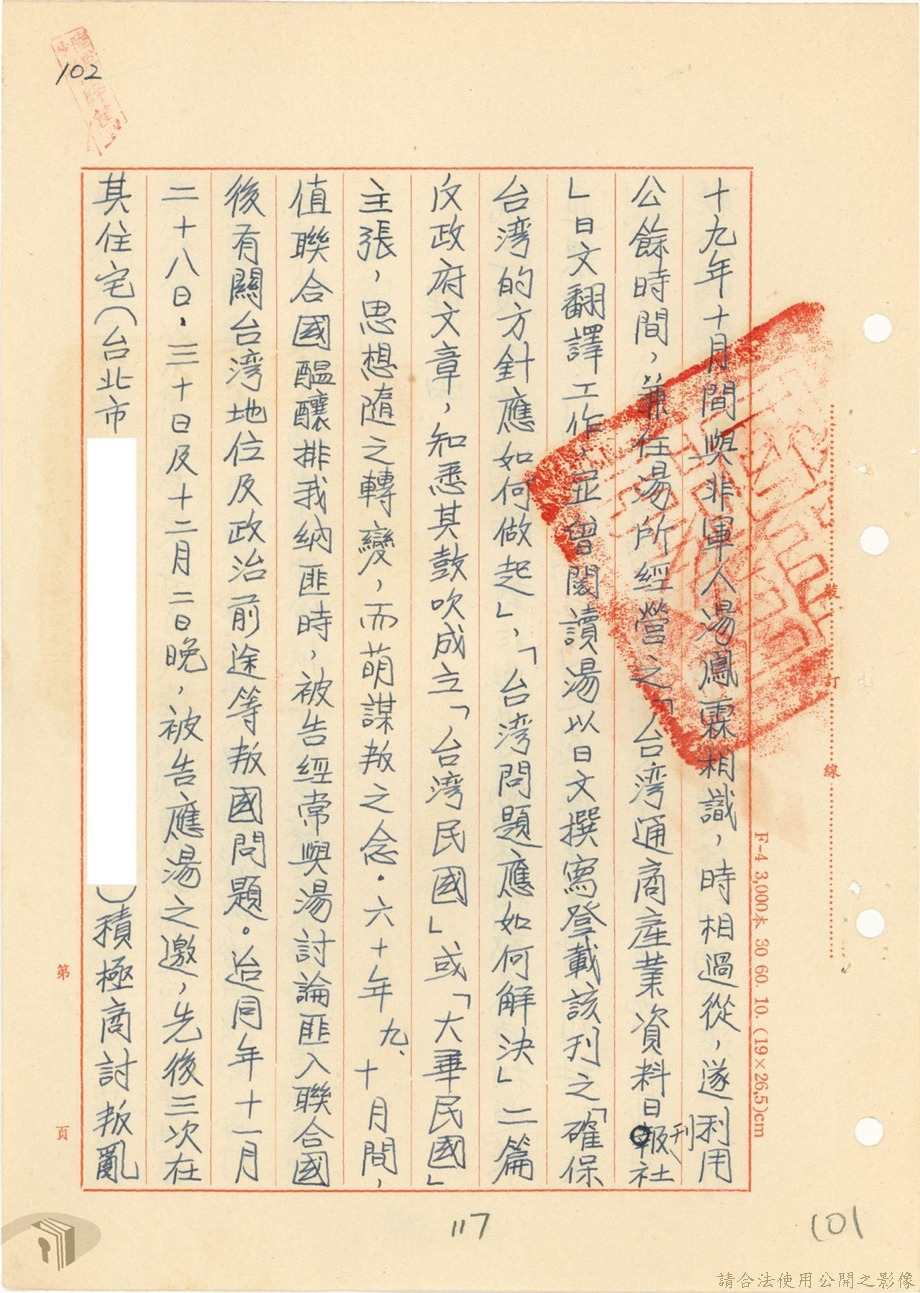 102
十九年十月間與非軍人湯鳳霖相識，時相過從，遂利用
公餘時間，兼任湯所經營之「台湾通商産業資料日報刊社
」日文翻譯工作，並曾閱讀湯以日文撰寫登載該刊之「確保
台湾的方針應如何做起」，「台湾問題應如何解決」二篇
反政府文章，知悉其鼓吹成立「台湾民國」或「大華民國」
主張，思想隨之轉變，而萌謀叛之念．六十年九、十月間，
值聯合國醞釀排我納匪時，被告經常與湯討論匪入聯合國
後有關台湾地位及政治前途等叛國問題。迨同年十一月
二十八日．三十日及十二月二日晚，被告應湯之邀，先後三次在
其住宅（台北市
）積極商討叛亂
裝
訂
線
F-4 3,000本 30 60. 10. (19×26,5)cm
第
頁
117
101
請合法使用公開之影像